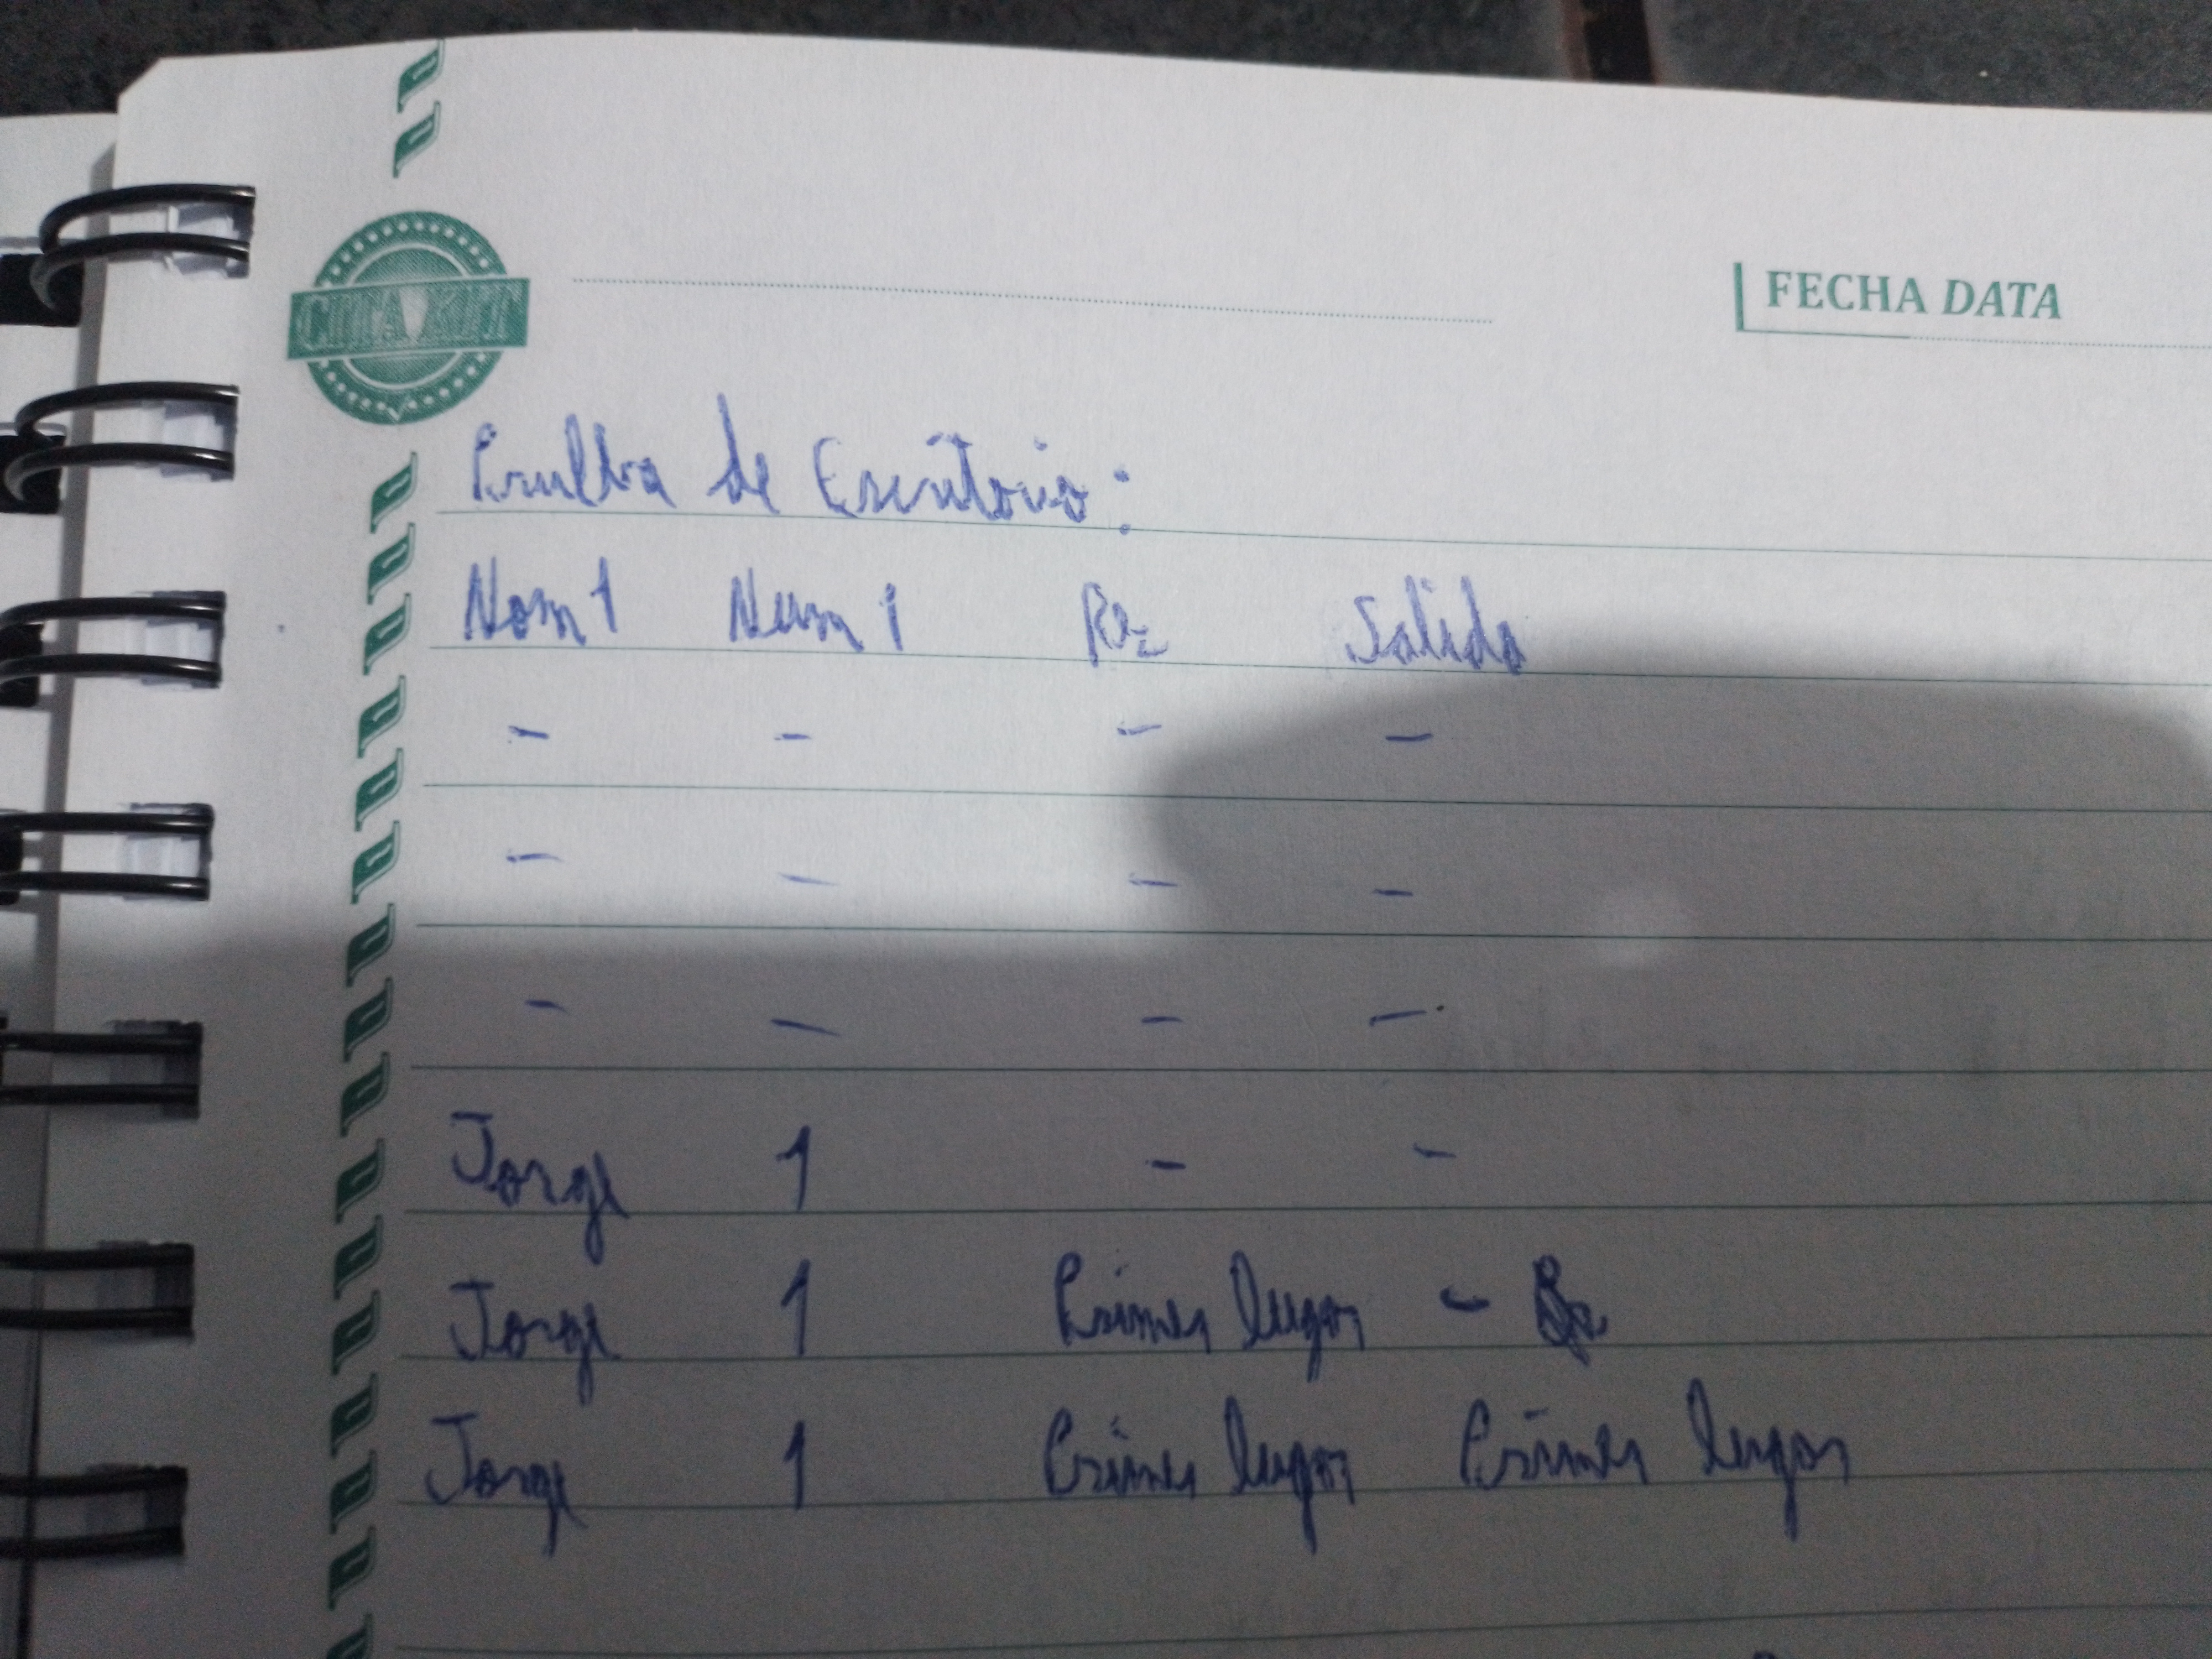 CHTA KITT
FECHA DATA
Prueba de Escritorio:
Nom 1 Num 1 Re Salida
- - - -
- - - -
- - - -
Jorge 1 - -
Jorge 1 Primer lugar -
Jorge 1 Primer lugar Primer lugar